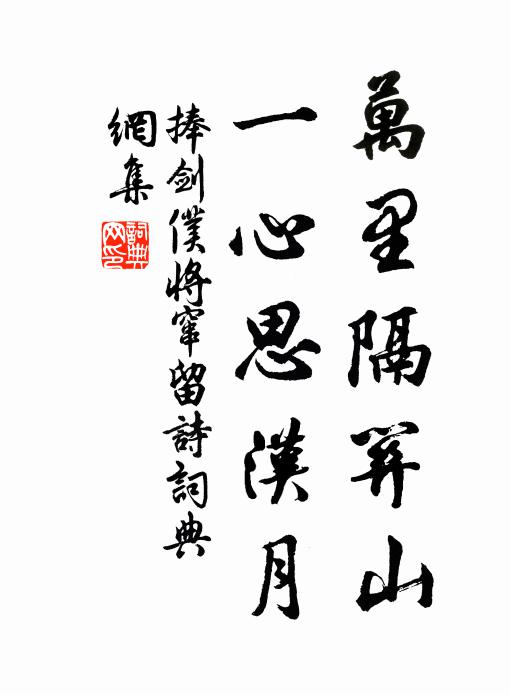 萬里隔關山
一心思漢月
捧劍僕將窜留詩詞典
網集
詞典
网印